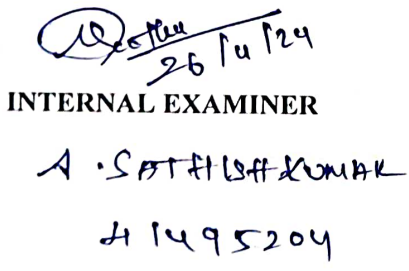 26/4/24
INTERNAL EXAMINER
A . SATHISH KUMAR
41495204